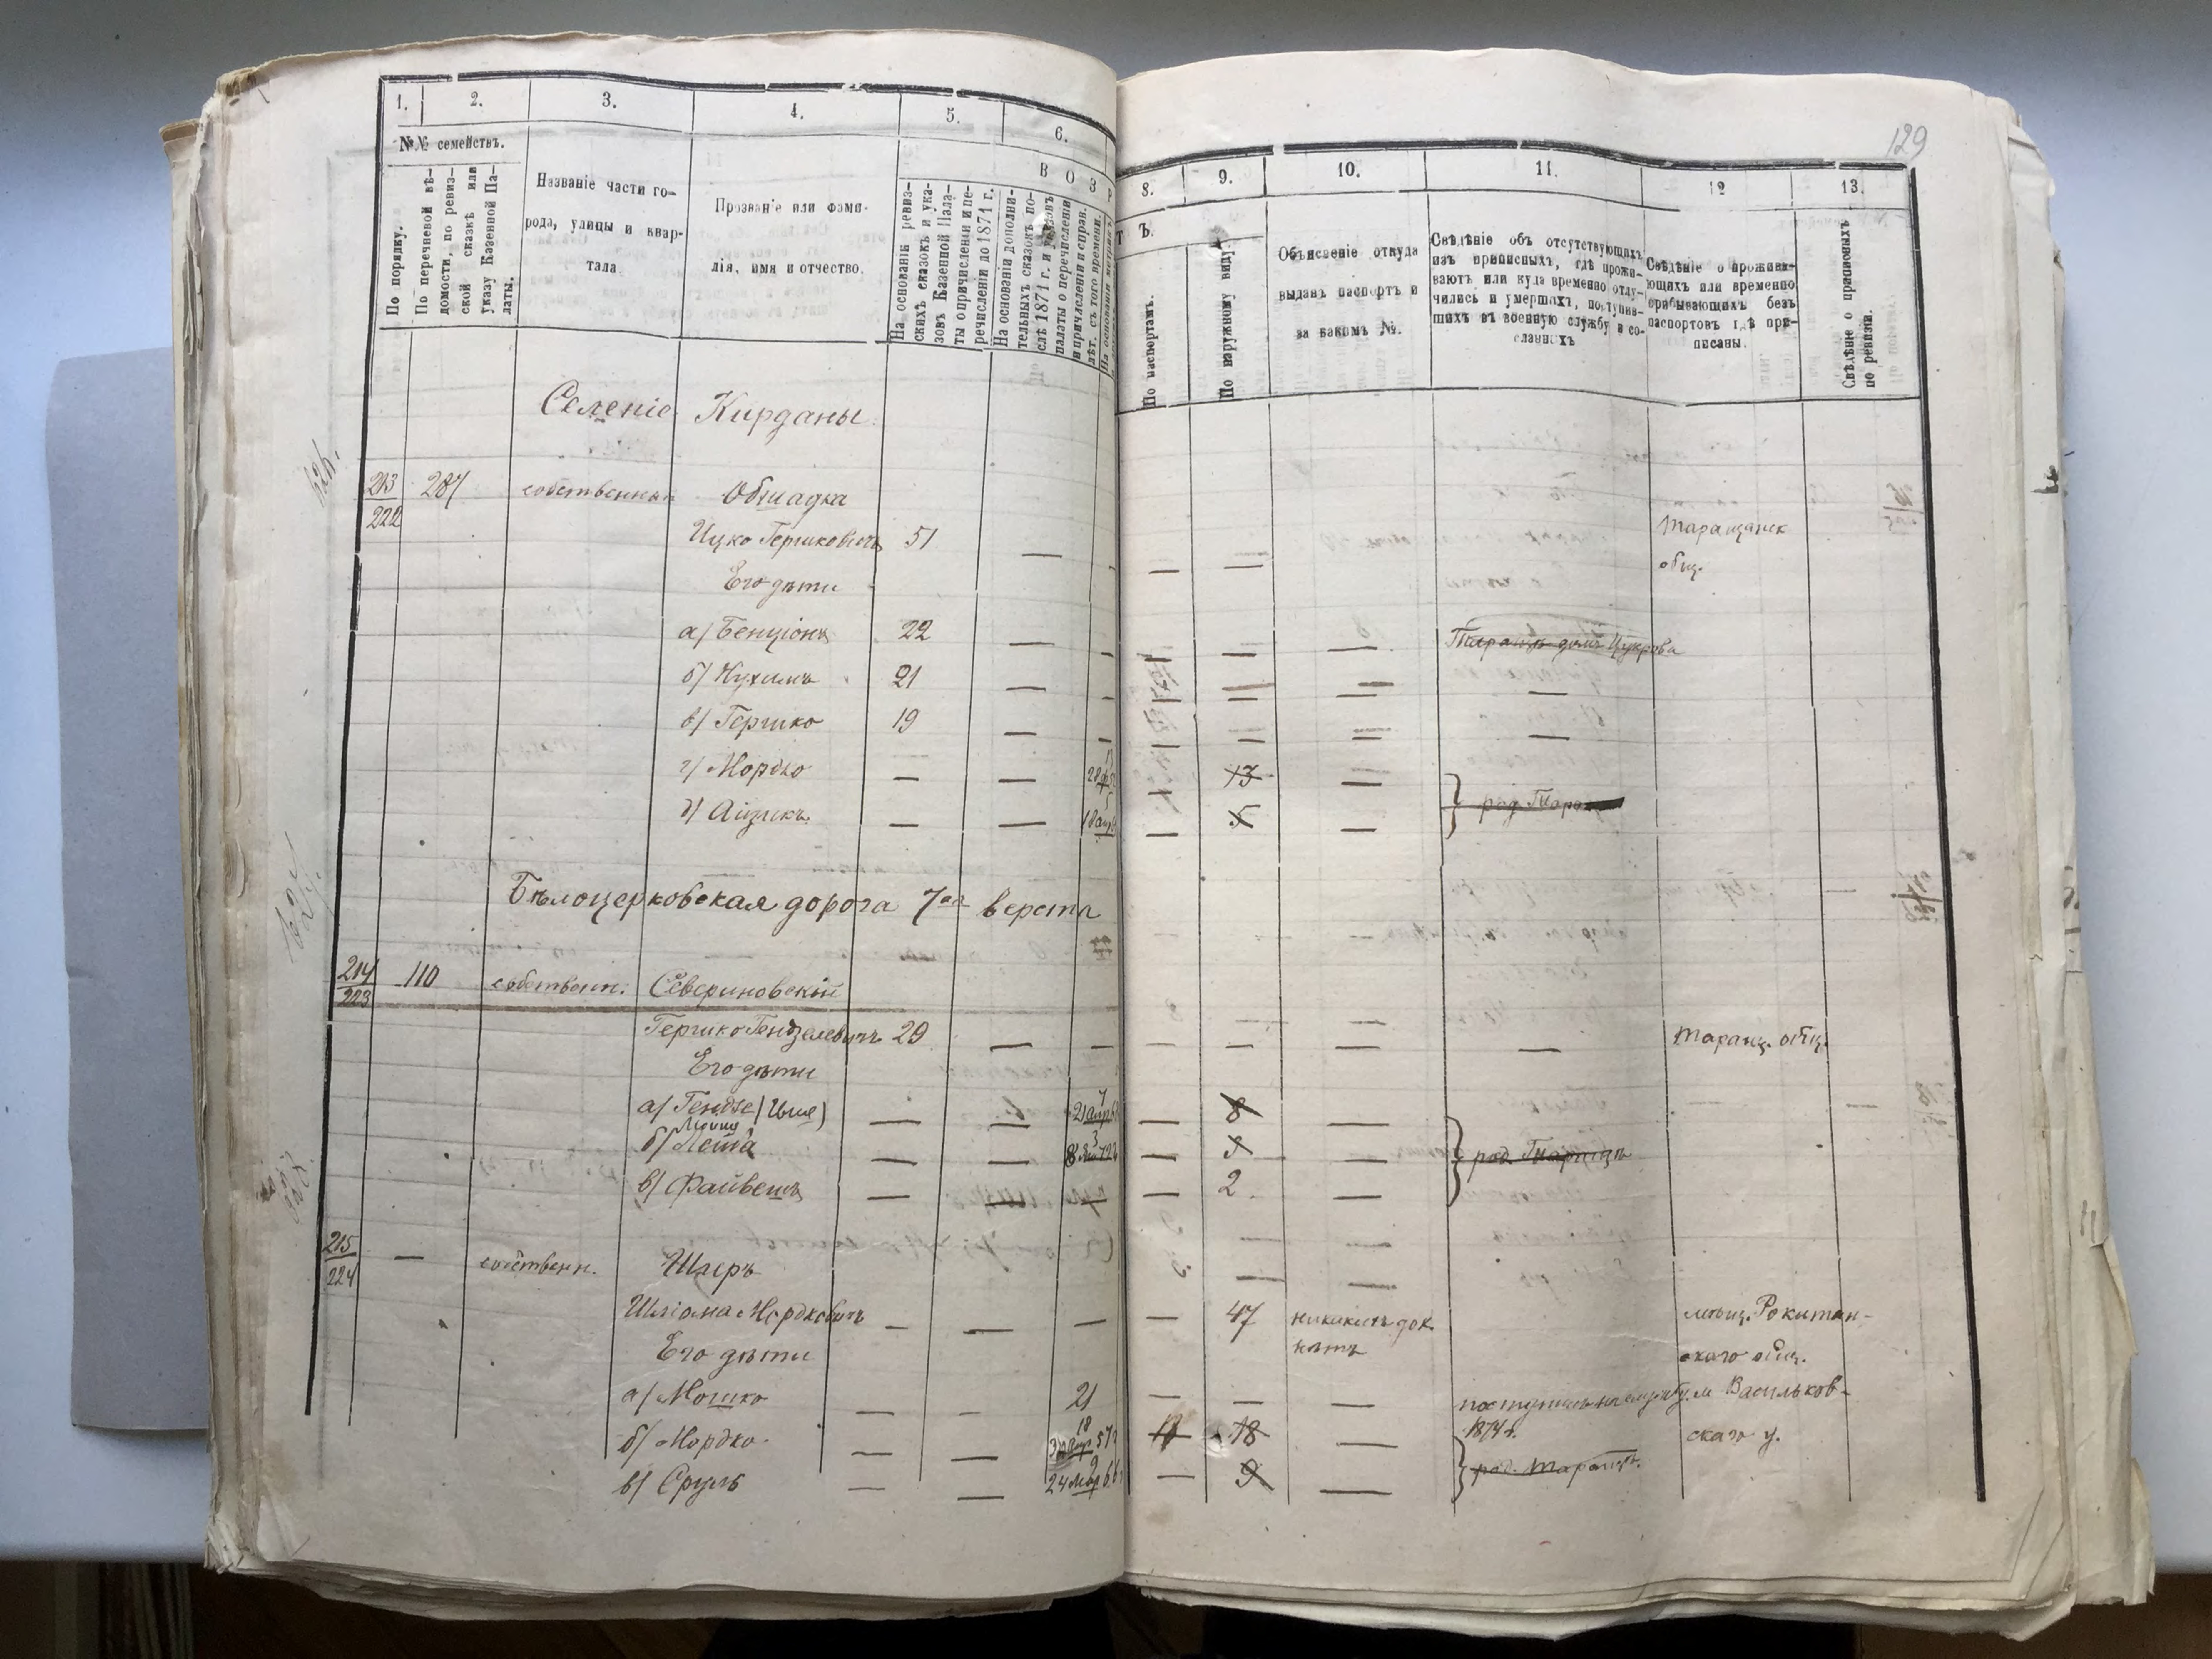 129
1. 2. 3. 4. 5. 6.
№№ семействъ.
По порядку.
По перечневой вѣ-
домости, по ревиз-
ской сказкѣ или
указу Казенной Па-
латы.
Названіе части го-
рода, улицы и квар-
тала
Прозваніе или фами-
лія, имя и отчество.
В О З Р
На основаніи ревиз-
скихъ сказокъ и ука-
зовъ Казенной Пала-
ты о причисленіи и пе-
речисленіи до 1871 г.
На основаніи дополни-
тельныхъ сказокъ по-
слѣ 1871 г. и указовъ
палаты о перечисленіи
и причисленіи и справ.
лѣт. съ того времени.
На основаніи метрикъ
8. 9. 10. 11. 12 13.
Т Ъ.
По паспортамъ.
По наружному виду
Объясненіе откуда
выданъ паспортъ и
за какимъ №.
Свѣдѣніе объ отсутствующихъ
изъ приписныхъ, гдѣ прожи-
ваютъ или куда временно отлу-
чились и умершихъ, поступив-
шихъ въ военную службу и со-
сланныхъ
Свѣдѣніе о прожива-
ющихъ или временно
прибывающихъ безъ
паспортовъ гдѣ при-
писаны.
Свѣдѣніе о приписныхъ
по ревизіи.
Селеніе Кирданы.
213 287 собственный Обшадка
222
Ицко Гершковичъ 51 — — — Таращанск
общ.
Его дѣти
а) Бенціонъ 22 — — — Таращѣ домъ Цукрова
б) Нухимъ 21 — — — —
в) Гершко 19 — — — —
г) Мордко — — 13 —
д) Айзикъ — — 5 — 5 — род. Тара
Бѣлоцерковская дорога 7ая верста
214 110 собственн. Севериновскій
223
Гершко Гендзелевичъ 29 — — — — — — Таращ. общ.
Его дѣти
а) Гендзе (Иые) — — 7 — 8 —
б) Лейба — — 3 — —
в) Файвешъ — — — 2 —
род. Таращѣ
215 — собственн. Шаеръ
224
Шліома Мордковичъ — — — — 47 никакихъ док. мѣщ. Рокитан-
нѣтъ скаго общ.
Его дѣти
а) Мошко — — 21 — — — поступилъ на службу м Васильков-
1874 г. скаго у.
б) Мордко — — 18 18 —
в) Сруль — — 9 — 9 — род. Таращѣ.